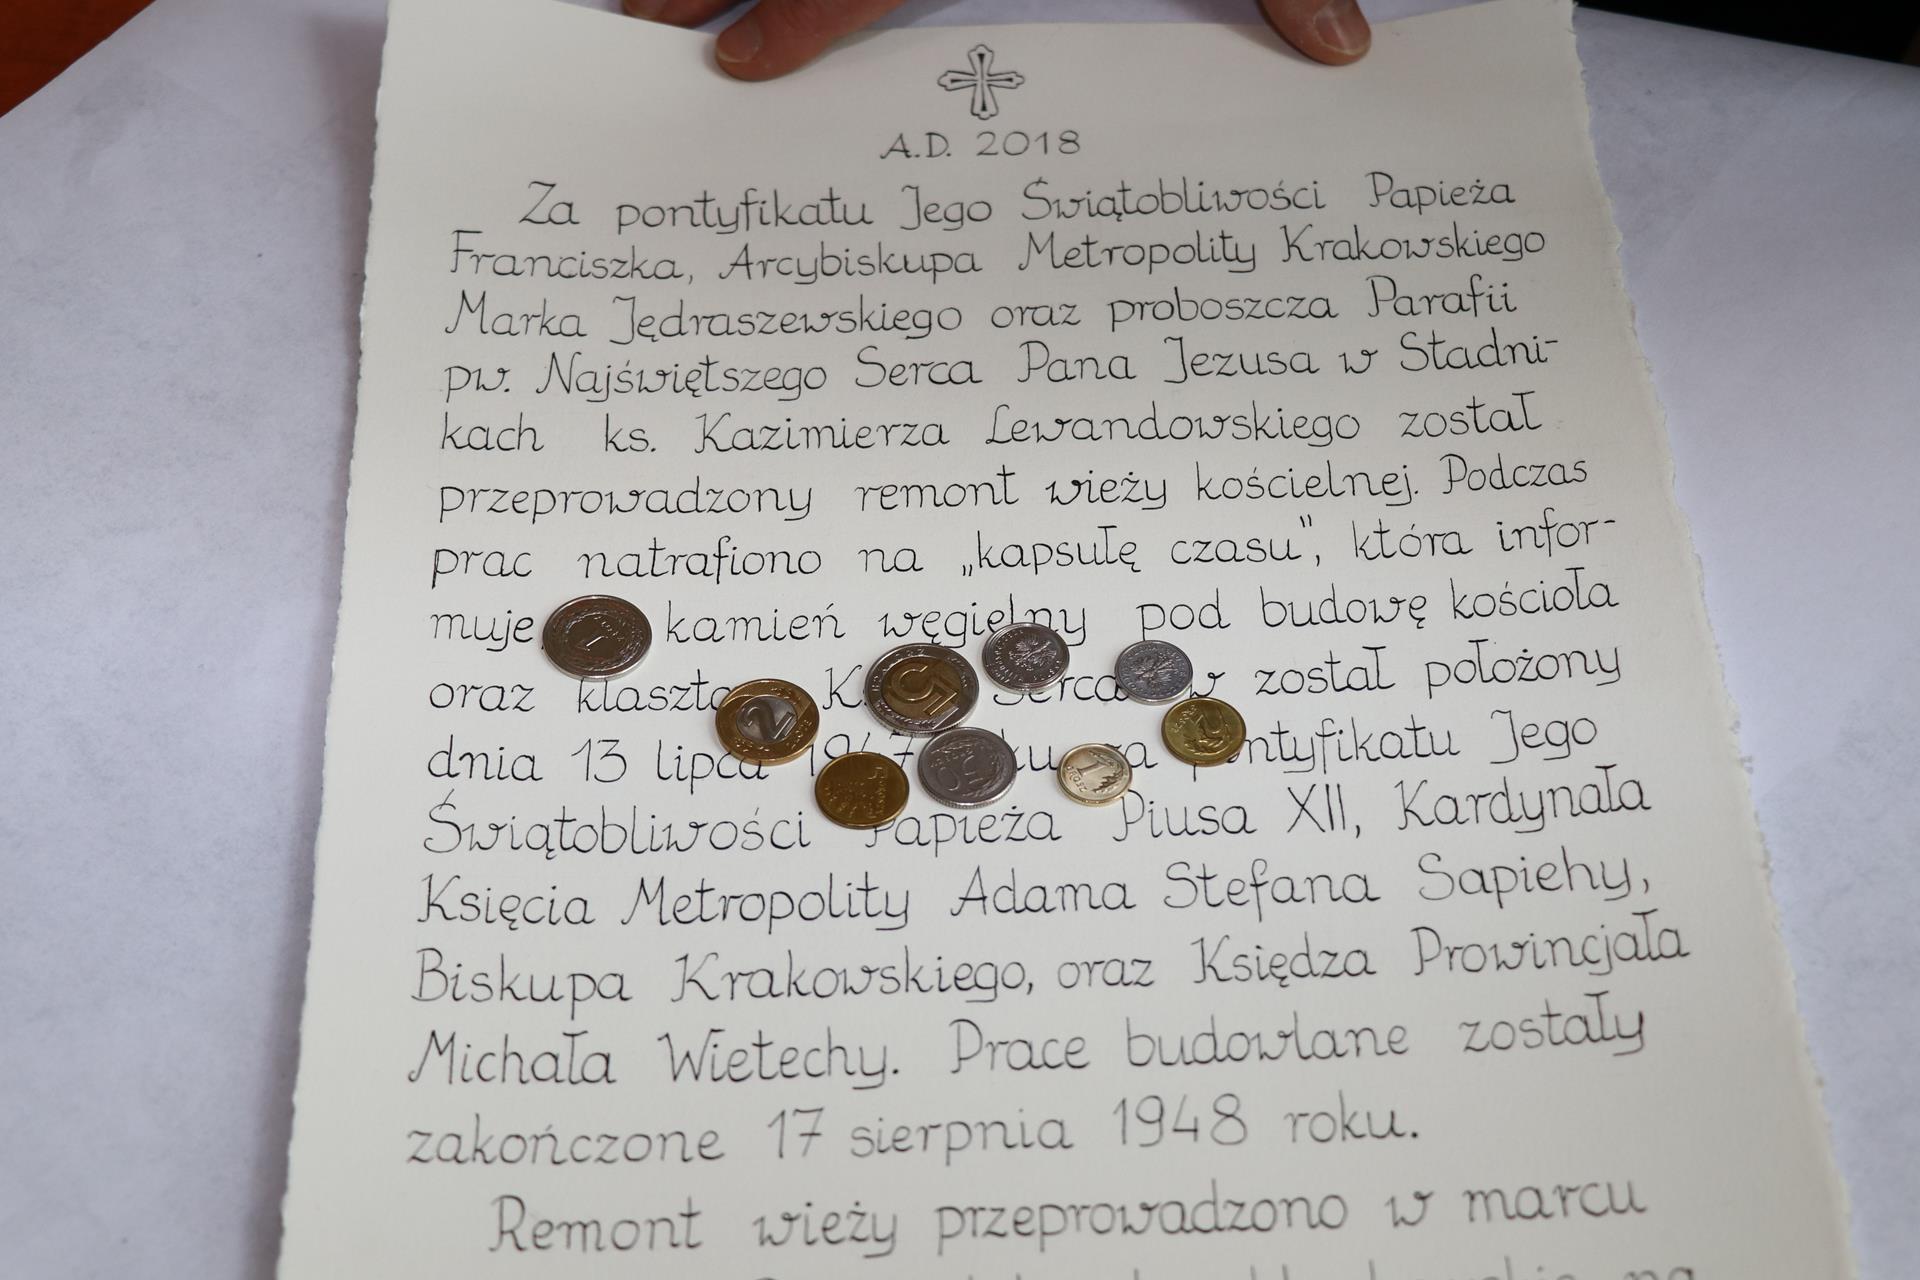 A.D. 2018
Za pontyfikatu Jego Świątobliwości Papieża
Franciszka, Arcybiskupa Metropolity Krakowskiego
Marka Jędraszewskiego oraz proboszcza Parafii
pw. Najświętszego Serca Pana Jezusa w Stadni-
kach ks. Kazimierza Lewandowskiego został
przeprowadzony remont wieży kościelnej. Podczas
prac natrafiono na „kapsułę czasu", która infor-
muje kamień węgielny pod budowę kościoła
oraz został położony
dnia 13 lipca Jego
Świątobliwości Papieża Piusa XII, Kardynała
Księcia Metropolity Adama Stefana Sapiehy,
Biskupa Krakowskiego, oraz Księdza Prowincjała
Michała Wietechy. Prace budowlane zostały
zakończone 17 sierpnia 1948 roku.
Remont wieży przeprowadzono w marcu